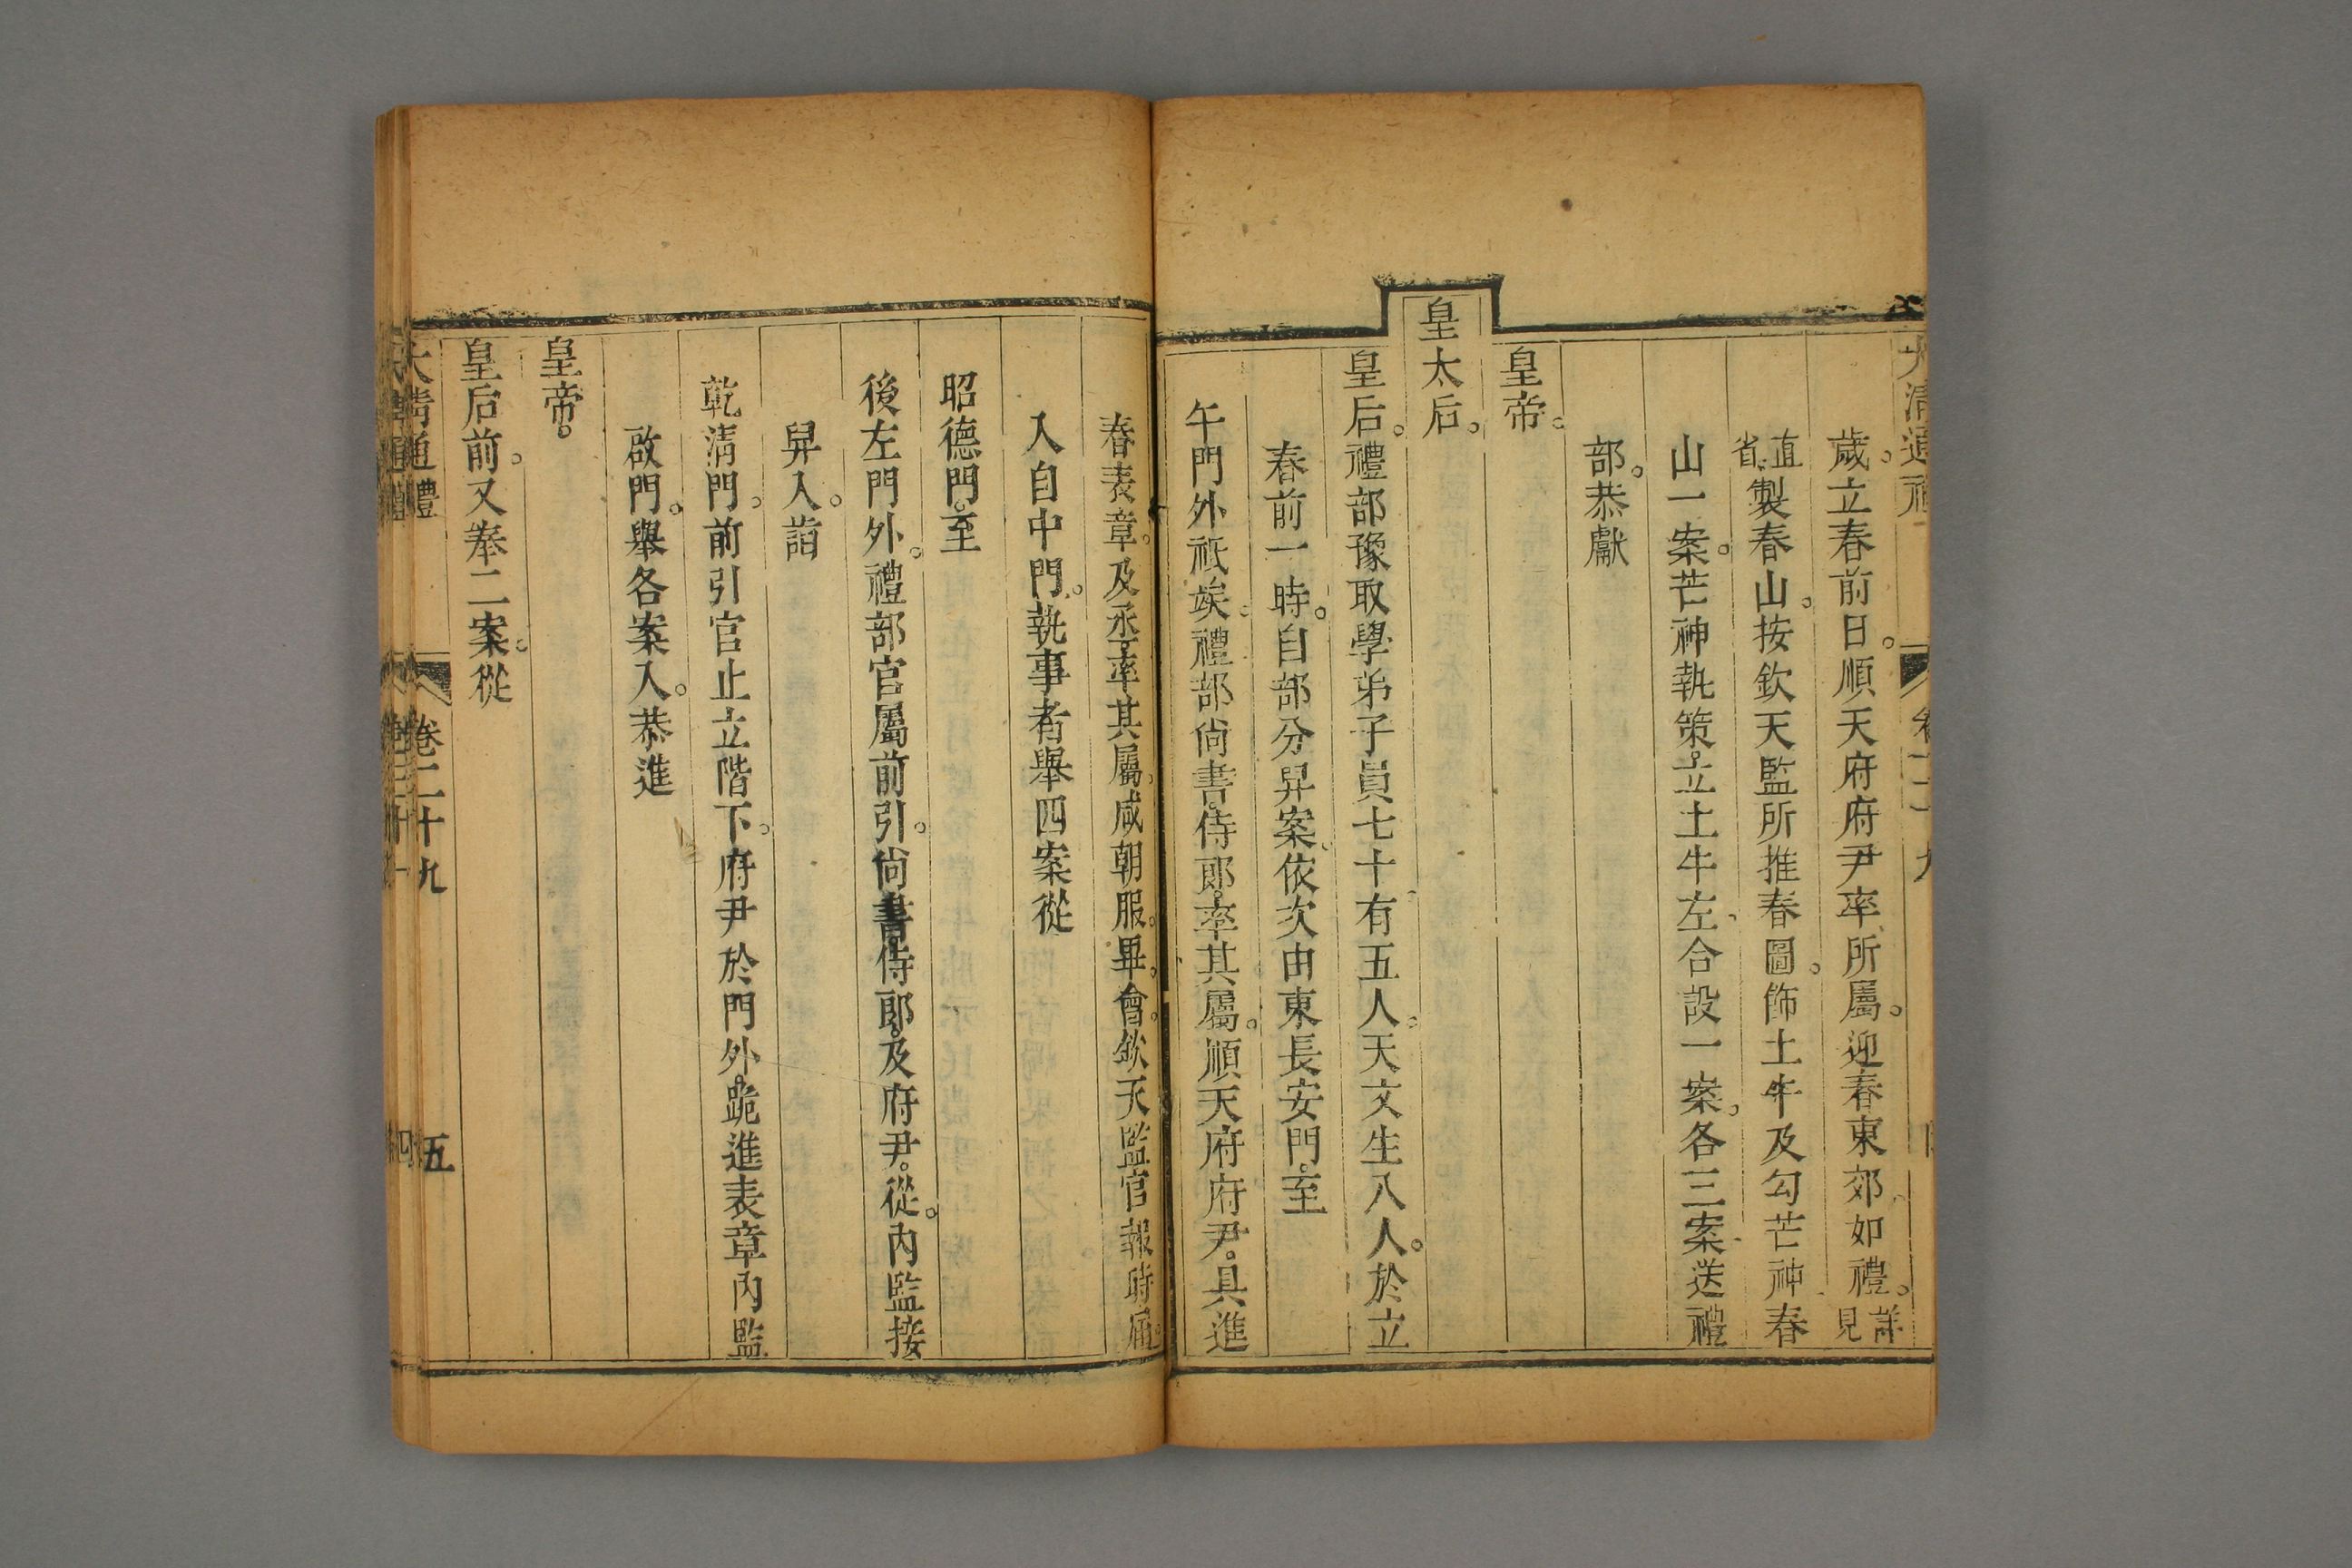 大清通禮
歲。立春前日。順天府府尹率所屬。迎春東郊如禮。詳見
直省。製春山。按欽天監所推春圖。飾土牛及勾芒神春
山一案。芒神執策。立土牛左。合設一案。各三案。送禮
部。恭獻
皇帝。
皇太后。
皇后。禮部豫取學弟子員七十有五人。天文生八人。於立
春前一時。自部分舁案。依次由東長安門。至
午門外祗竢。禮部尚書。侍郎。率其屬。順天府府尹。具進
春表章。及丞。率其屬。咸朝服。畢會。欽天監官報時屆。
入自中門。執事者舉四案從
昭德門。至
後左門外。禮部官屬前引。尚書。侍郎。及府尹。從。內監接
舁入。詣
乾清門。前引官止立階下。府尹於門外。跪進表章內監
啟門。舉各案入。恭進
皇帝。
皇后前。又奉二案。從
大清通禮 卷二十九 五